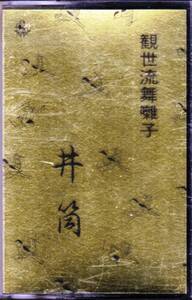 観世流舞囃子
井筒